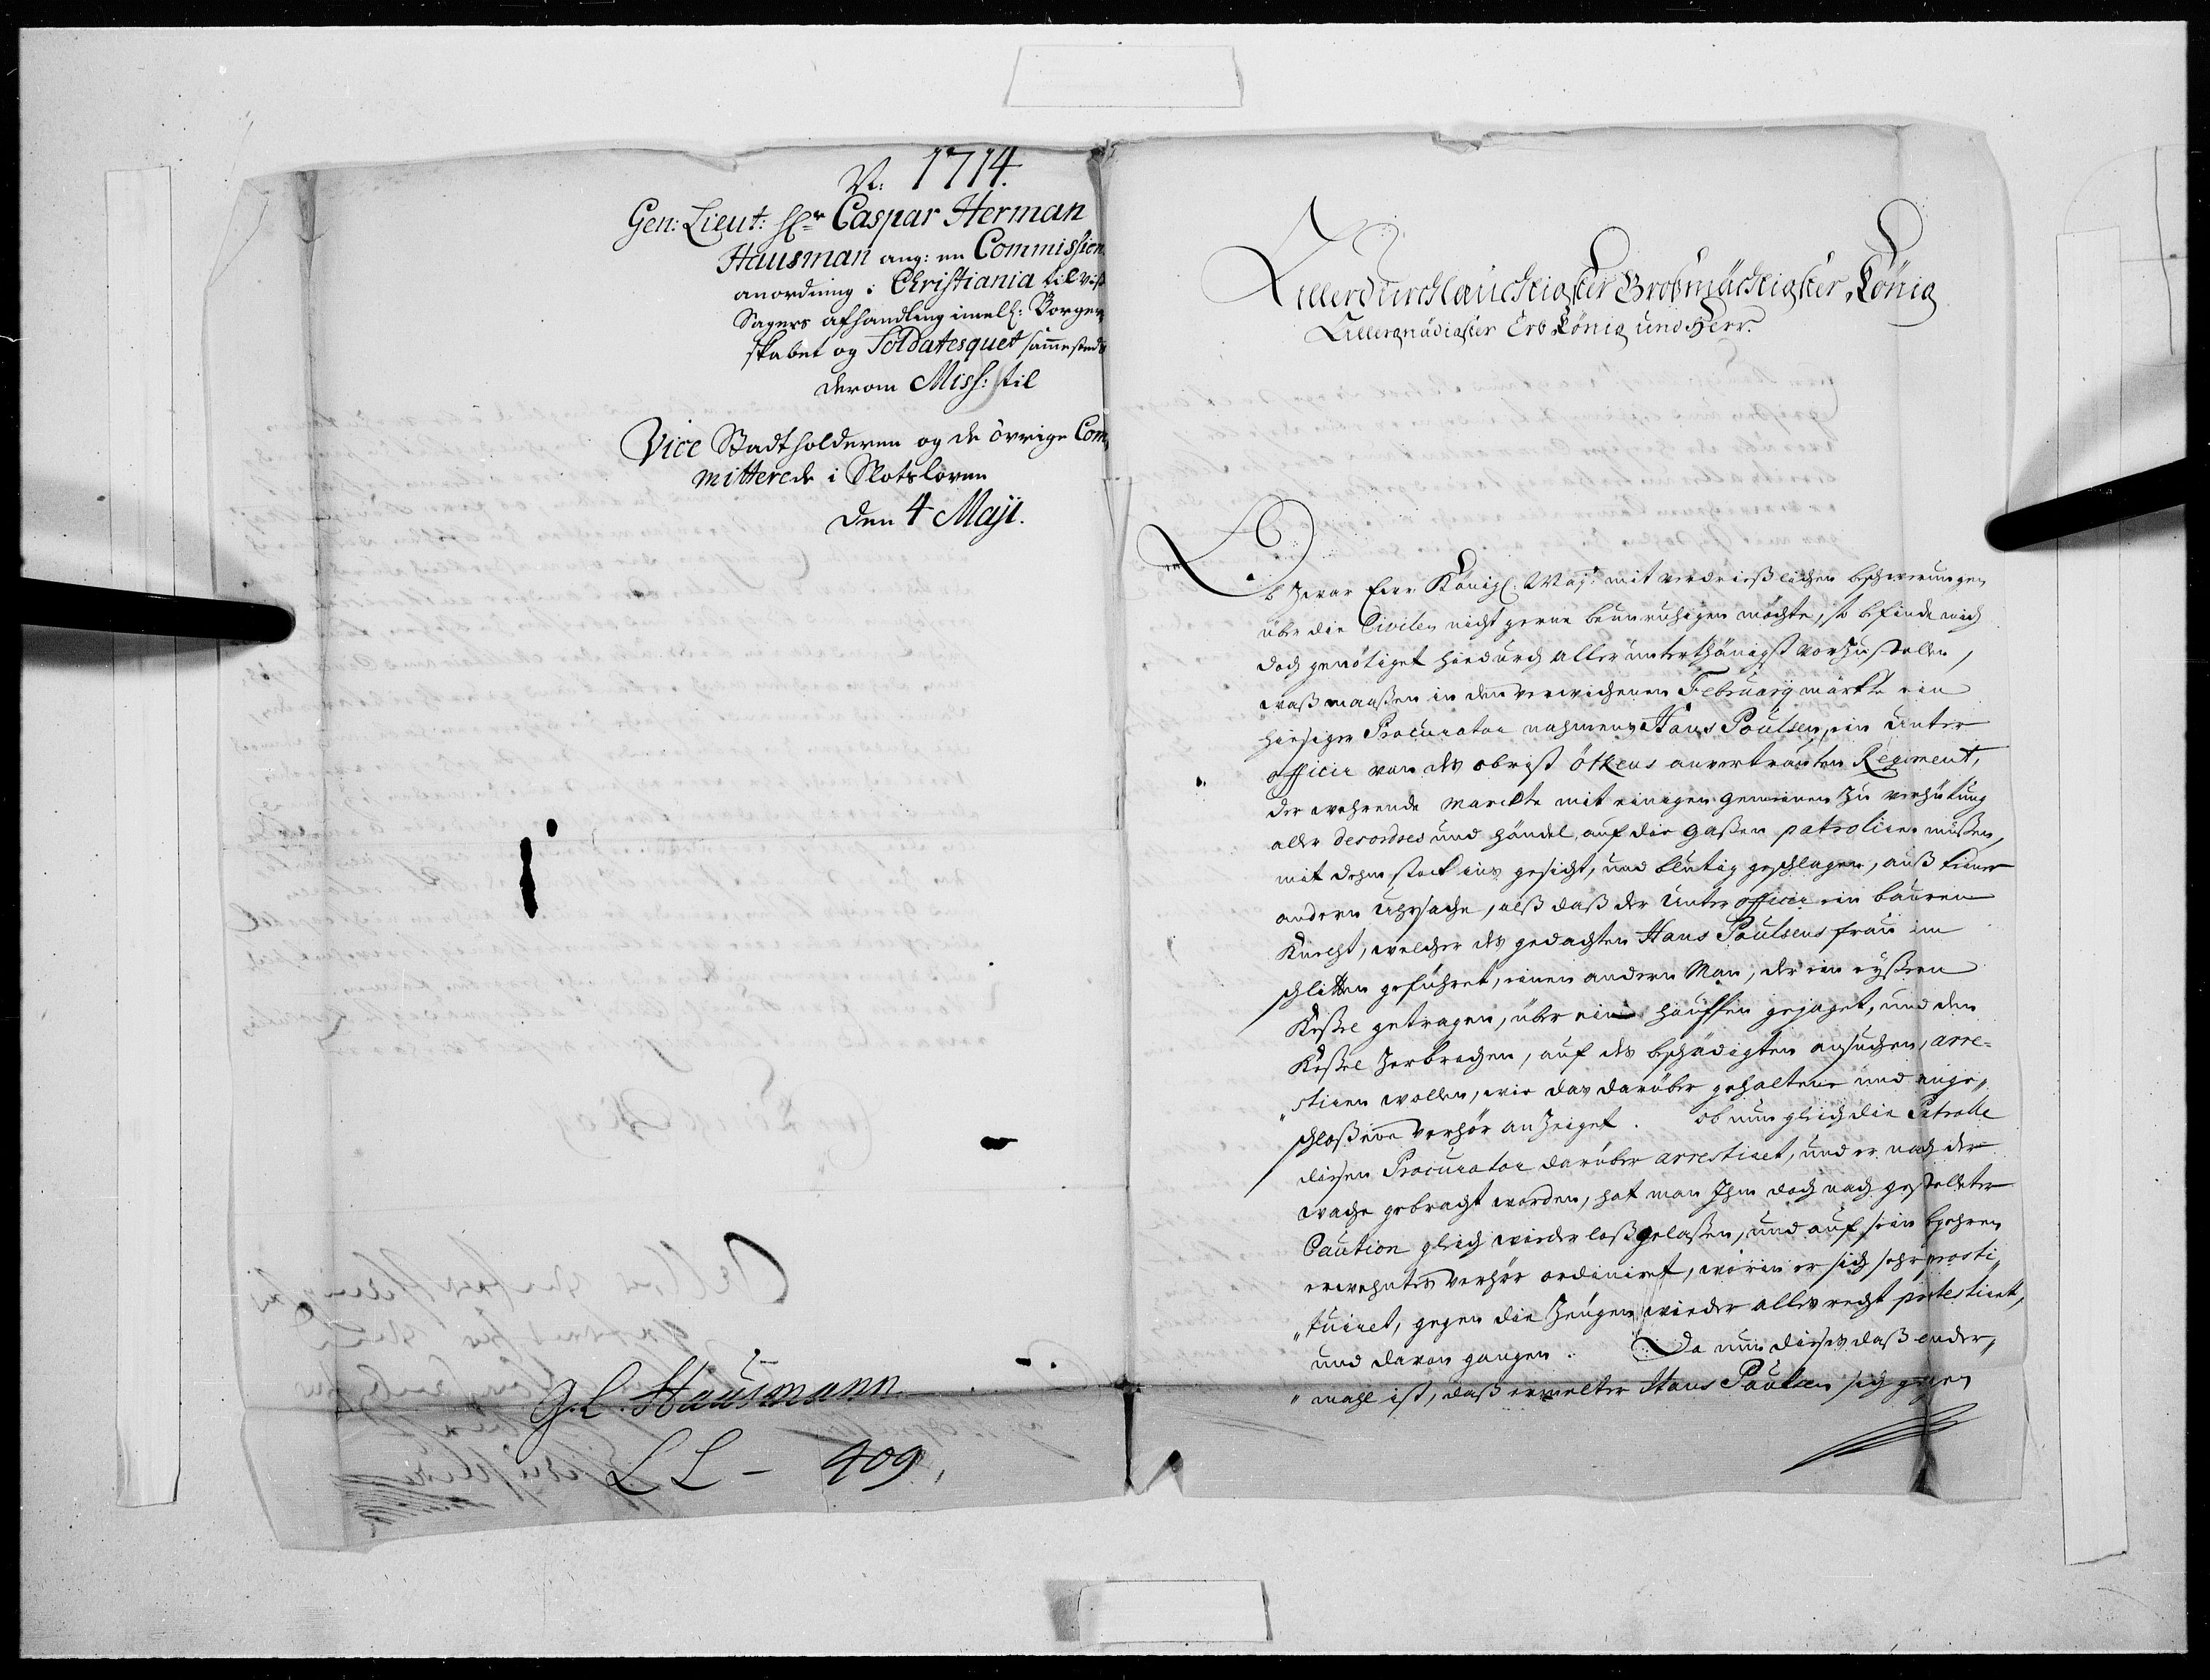 N: 1714.
Gen: Lieut: Hr Caspar Herman
Hausman ang: en Commission
anordning i Christiania til viß
Sagers afhandling imell: Borger
skabet og Soldatesquet sammesteds
derom Miss: til
Vice Stadtholderen og de övrige Com,
mitterede i Slotsloven
den 4 Maji.
G. L. Hausmann
LL - 409,
Allerdurchlauchtigster Großmächtigster König
Allergnädigster Erb König und Herr.
Ob zwar Eure Königl: Maj: mit verdrießlichen beschwerungen
über die Civilen nicht gerne beunruhigen möchte, so befinde mich
doch genötiget hiedurch aller unterthänigst vorzustellen,
waß maaßen in den verwichenen Februarij märkte ein
hiesiger Procurator nahmens Hans Poulsen, ein Unter
officir von des obrist Ötkens anvertrauten Regiment,
der wehrende marckte mit einigen gemeinen zu verhütung
aller desordres und händel, auf die gaßen patroliren müßen,
mit dehm stock ins gesicht, und blutig geschlagen, auß keiner
andern Uhrsache, alß daß der Unter officir ein bauren
Knecht, welcher des gedachten Hans Poulsens frau im
schlitten geführet, einen andern Man, der ein eyßern
Keßel getragen, über ein hauffen gejaget, und den
Keßel zerbrochen, auf des beschädigten ansuchen, arre-
"stiren wollen, wie das darüber gehaltene und einge"
schloßene verhör anzeiget. Ob nun gleich die Patrolle
diesen Procurator darüber arrestiret, und er nach der
wache gebracht worden, hat man Ihm doch nach gestelleter
Caution gleich wieder loßgelaßen, und auf sein begehren
erwehntes verhör ordiniret, worin er sich sehr prosti"
"tuiret, gegen die Zeugen wieder alles recht protestiret,
und davon gangen. Da nun dieses daß ander"
"mahl ist, daß ermelter Hans Poulsen sich gegen